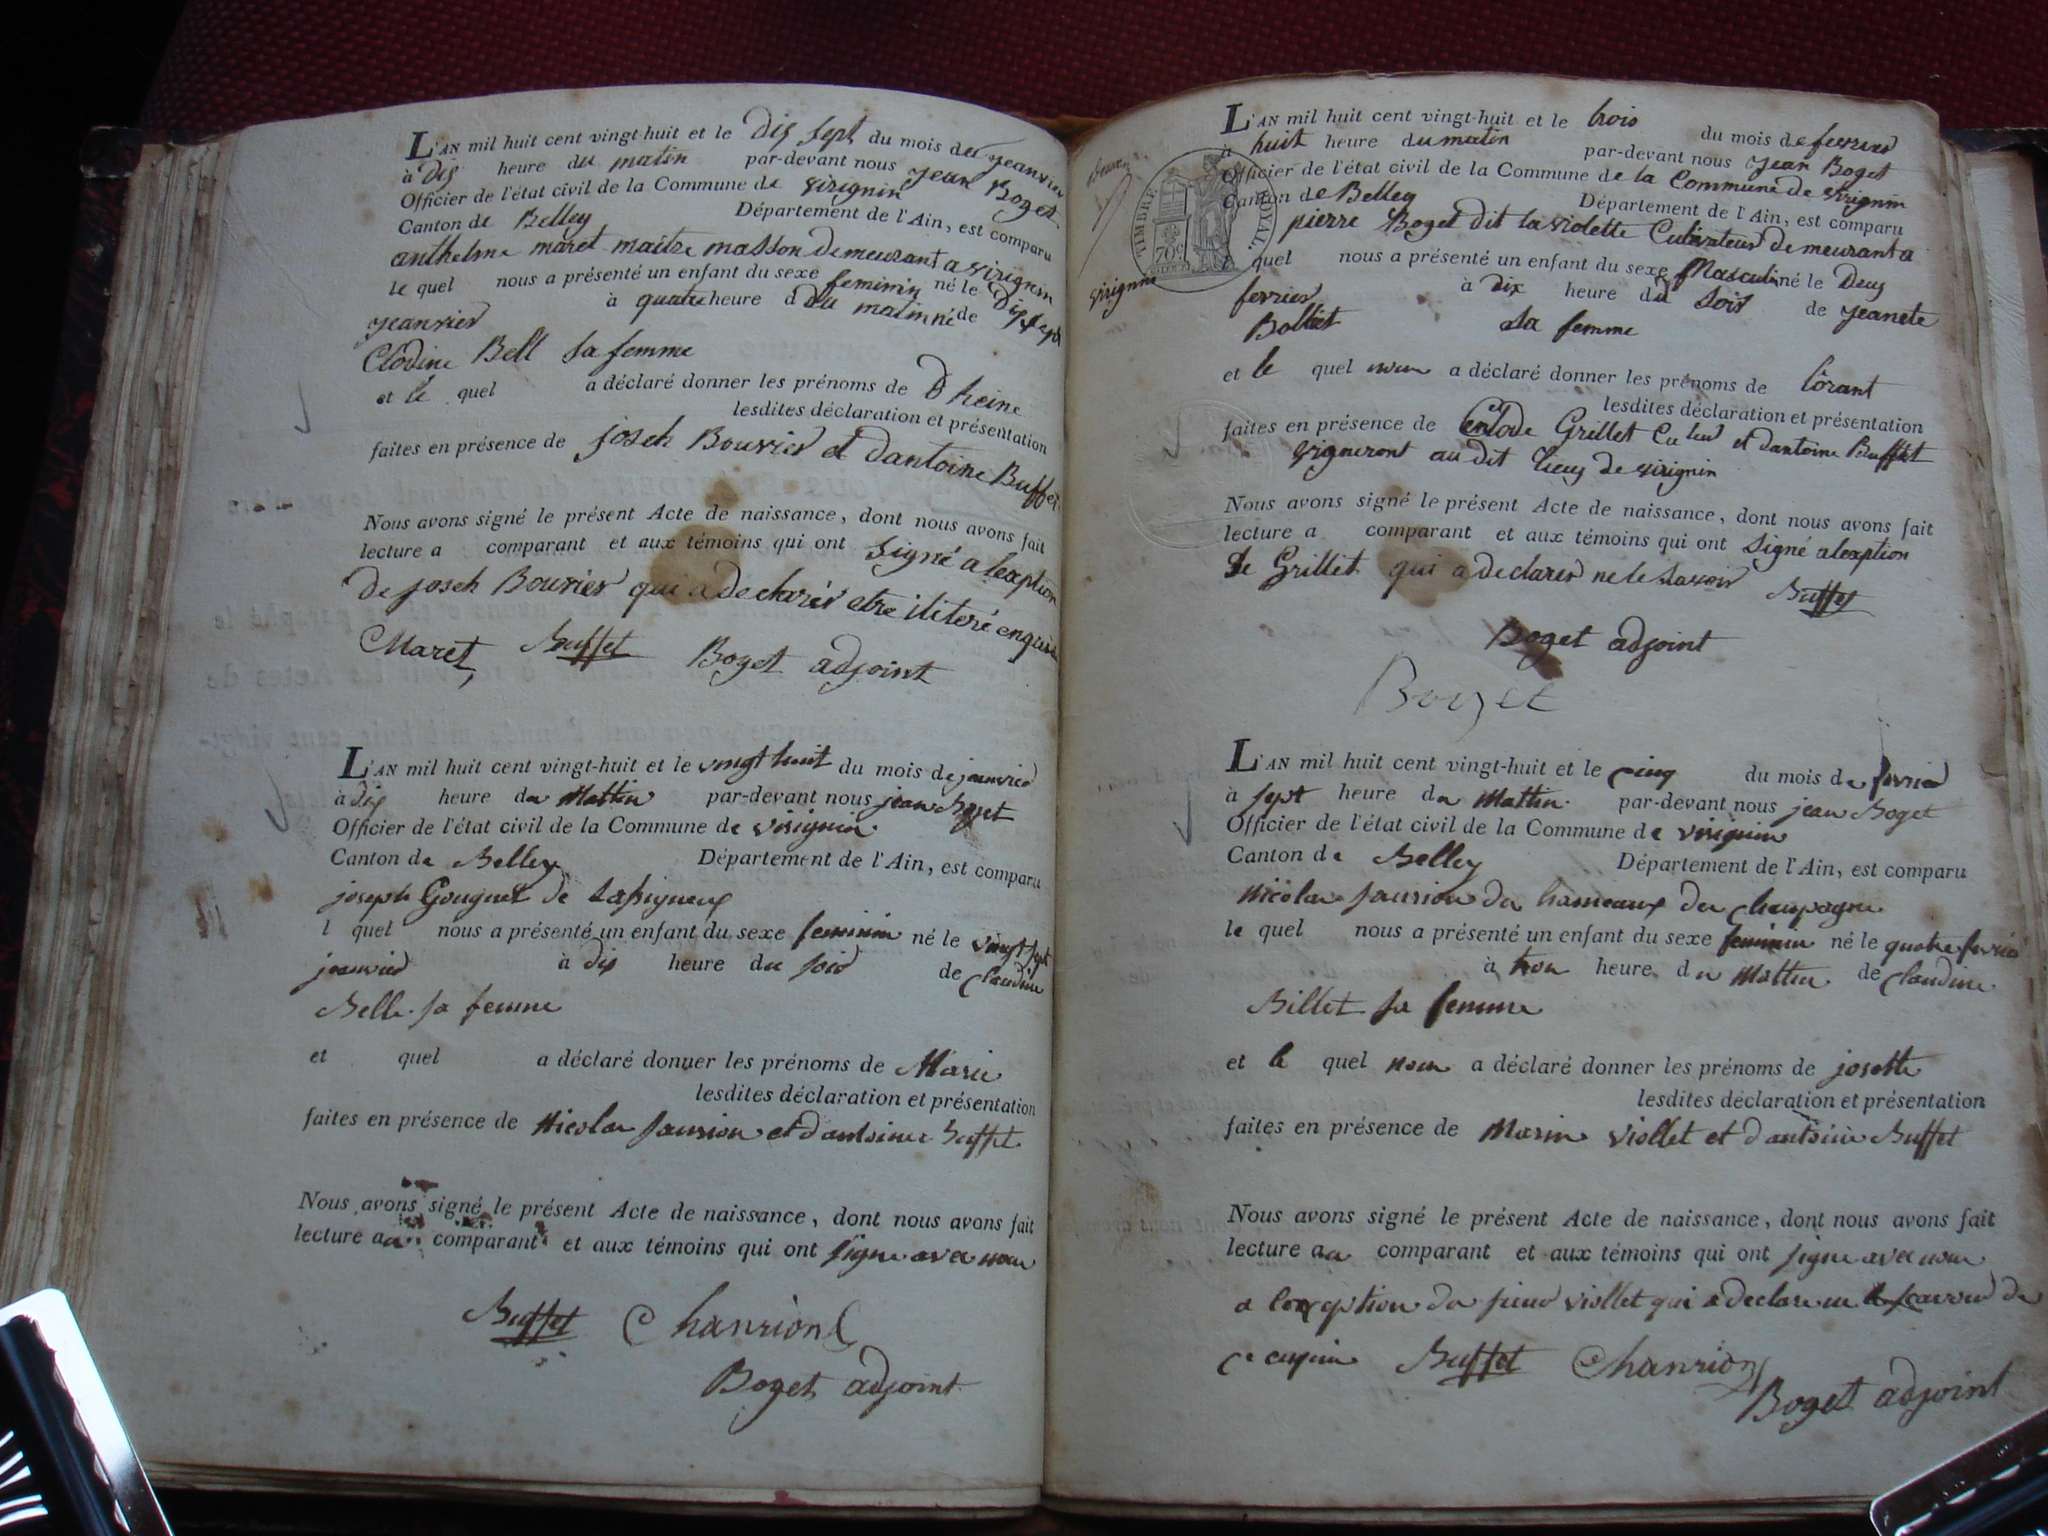 L'AN mil huit cent vingt-huit et le dix sept du mois de jeanvier
à dix heure du matin par-devant nous jean Boget
Officier de l'état civil de la Commune de virignin
Canton de Belley Département de l'Ain, est comparu
anthelme maret maitre masson demeurant a virignin
le quel nous a présenté un enfant du sexe feminin né le dix sept
jeanvier à quatre heure du matin né de
Clodine Bell sa femme
et le quel a déclaré donner les prénoms de
lesdites déclaration et présentation
faites en présence de joseh Bouvier et dantoine Buffet
Nous avons signé le présent Acte de naissance, dont nous avons fait
lecture a comparant et aux témoins qui ont signé a lexption
de joseh Bouvier qui a declarer etre iliteré enquis
Maret Buffet Boget adjoint
L'AN mil huit cent vingt-huit et le vingt huit du mois de janvier
à dix heure du Mattin par-devant nous jean Boget
Officier de l'état civil de la Commune de virignin
Canton de Belley Département de l'Ain, est comparu
joseph Gouguet de
l quel nous a présenté un enfant du sexe feminin né le vingt sept
janvier à dix heure du soir de claudine
Belle sa femme
et quel a déclaré donner les prénoms de Marie
lesdites déclaration et présentation
faites en présence de Nicolas et dantoine Buffet
Nous avons signé le présent Acte de naissance, dont nous avons fait
lecture au comparant et aux témoins qui ont signe avec nous
Buffet Chanrion
Boget adjoint
TIMBRE ROYAL
70c
virignin
L'AN mil huit cent vingt-huit et le trois du mois de fevrier
à huit heure du matin par-devant nous jean Boget
Officier de l'état civil de la Commune de la Commune de virignin
Canton de Belley Département de l'Ain, est comparu
pierre Boget dit la violette Cultivateur demeurant a
quel nous a présenté un enfant du sexe Masculin né le Deux
fevrier à dix heure du soir de jeanete
Bolliet sa femme
et le quel nous a déclaré donner les prénoms de lorant
lesdites déclaration et présentation
faites en présence de Clode Grillet et dantoine Buffet
vigneront au dit lieux de virignin
Nous avons signé le présent Acte de naissance, dont nous avons fait
lecture a comparant et aux témoins qui ont signé a lexption
de Grillet qui a declarer ne le savoir Buffet
Boget adjoint
Boget
L'AN mil huit cent vingt-huit et le cinq du mois de fevrier
à sept heure du Mattin par-devant nous jean Boget
Officier de l'état civil de la Commune de virignin
Canton de Belley Département de l'Ain, est comparu
Nicolas du hameaux de
le quel nous a présenté un enfant du sexe feminin né le quatre fevrier
à trois heure du Mattin de claudine
Billet sa femme
et le quel nous a déclaré donner les prénoms de josette
lesdites déclaration et présentation
faites en présence de Marin viollet et dantoine Buffet
Nous avons signé le présent Acte de naissance, dont nous avons fait
lecture au comparant et aux témoins qui ont signe avec nous
a lexcption du viollet qui a declare ne de
ce enquis Buffet Chanrion
Boget adjoint